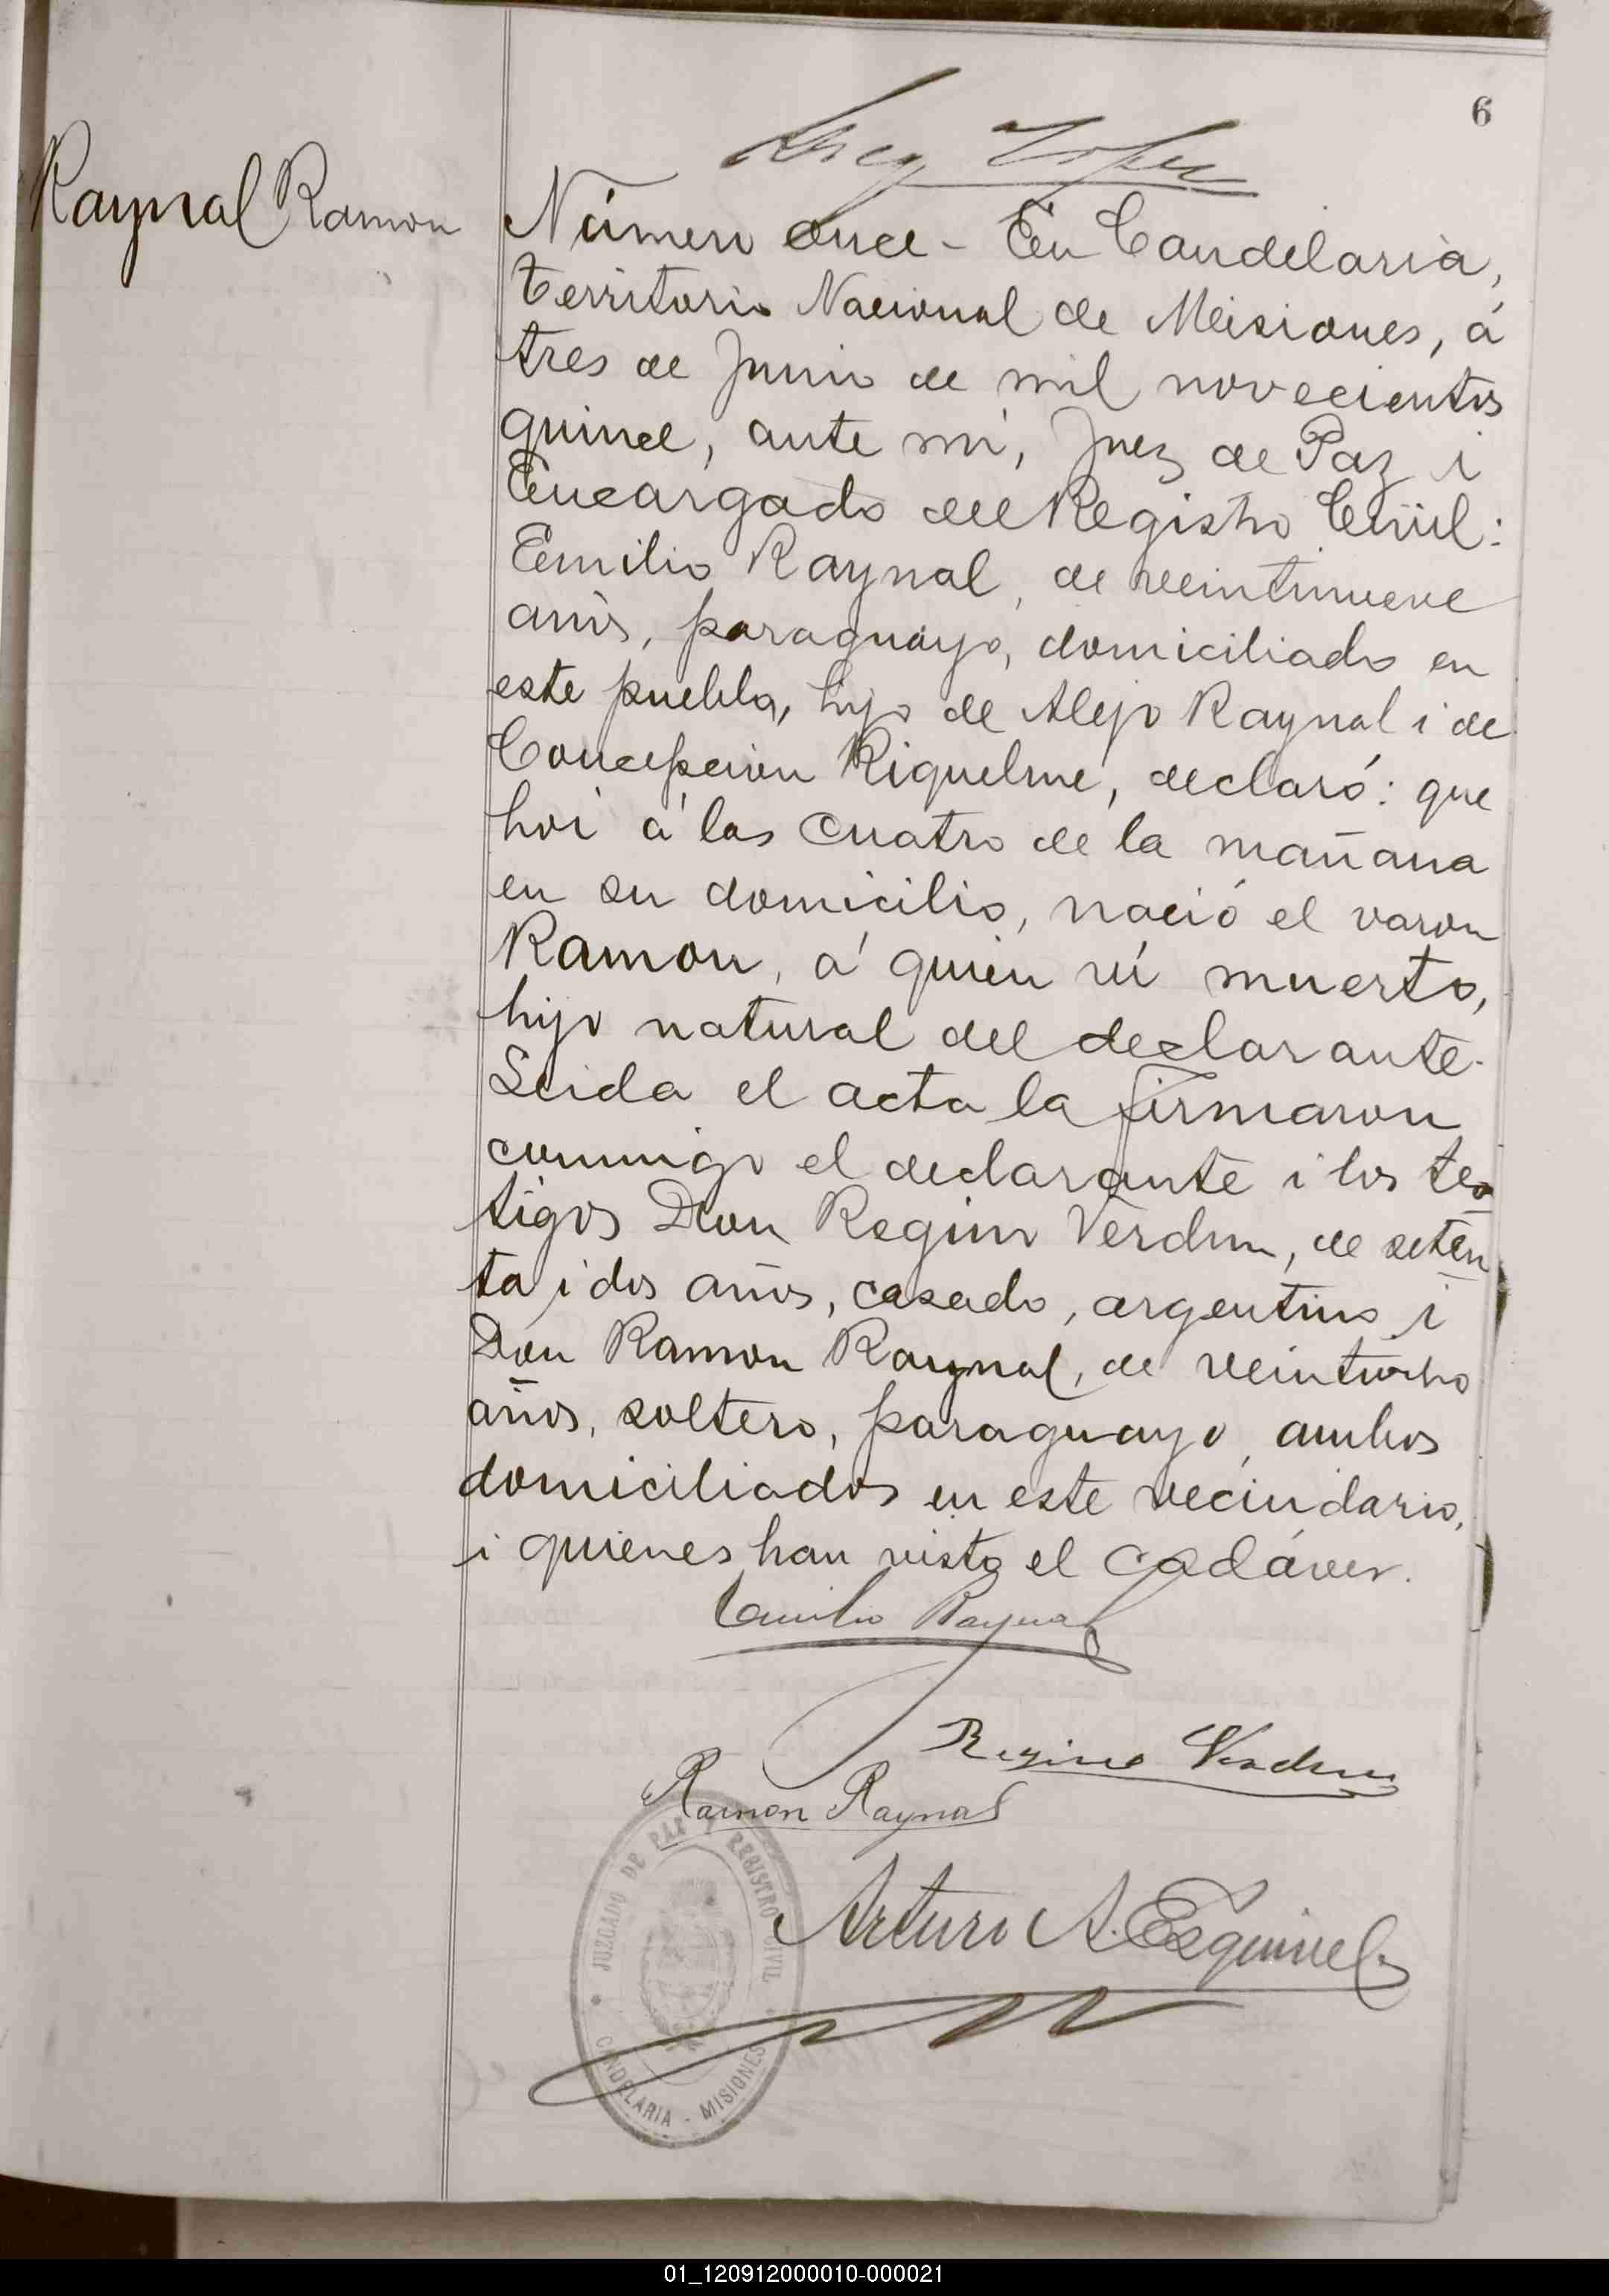 6
Lopez
Raynal Ramon
Número once - En Candelaria,
Territorio Nacional de Misiones, á
tres de Junio de mil novecientos
quince, ante mi, Juez de Paz i
Encargado del Registro Civil:
Emilio Raynal, de veintinueve
años, paraguayo, domiciliado en
este pueblo, hijo de Alejo Raynal i de
Concepcion Riquelme, declaró: que
hoi á las cuatro de la mañana
en su domicilio, nació el varon
Ramon, á quien ví muerto,
hijo natural del declarante.
Leida el acta la firmaron
conmigo el declarante i los tes
tigos Don Regino Verdun, de seten
ta i dos años, casado, argentino i
Don Ramon Raynal, de veintiocho
años, soltero, paraguayo, ambos
domiciliados en este vecindario,
i quienes han visto el cadáver.
Emilio Raynal
Regino Verdun
Ramon Raynal
Arturo A. Esquivel
JUZGADO DE PAZ Y REGISTRO CIVIL
CANDELARIA - MISIONES
01_120912000010-000021